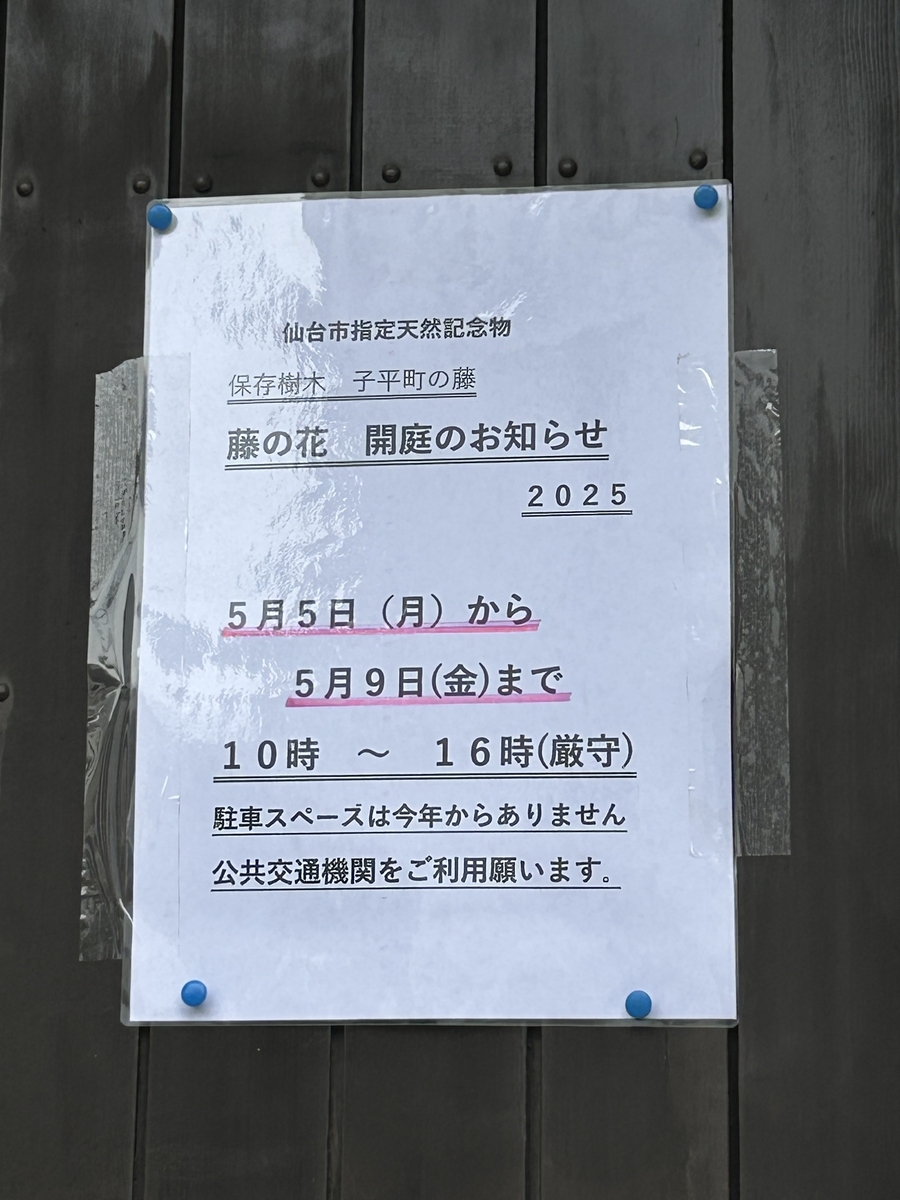 仙台市指定天然記念物
保存樹木　子平町の藤
藤の花　開庭のお知らせ
２０２５
５月５日（月）から
５月９日(金)まで
１０時　～　１６時(厳守)
駐車スペーズは今年からありません
公共交通機関をご利用願います。